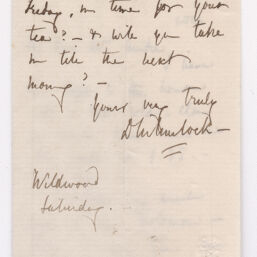 Friday, in time for your
tea? — & will you take
me till the next
morng? —
Yours very truly
Wildwood
Saturday. —